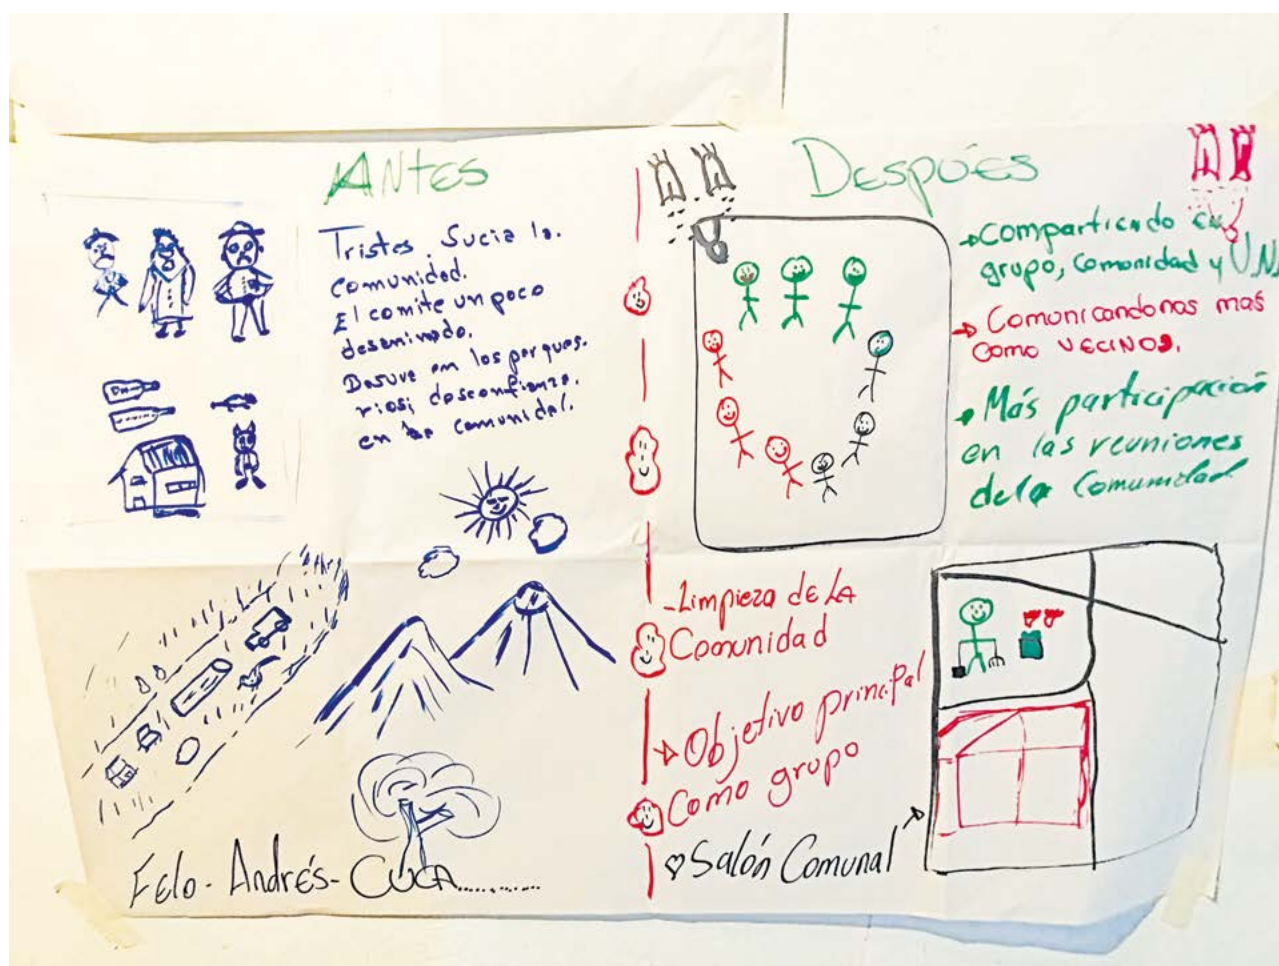 Antes
Tristes, Sucia la
comunidad.
El comite un poco
desanimado.
Basura en los parques.
rios; desconfianza.
en la comunidad.
Felo - Andrés - CUCA............
Despúes
→ Compartiendo en
grupo, comonidad y U.N.
→ Comunicandonos más
como VECINOS.
• Más participación
en las reuniones
de la Comunidad
- Limpieza de LA
Comonidad
→ Objetivo principal
Como grupo
♡ Salón Comunal →